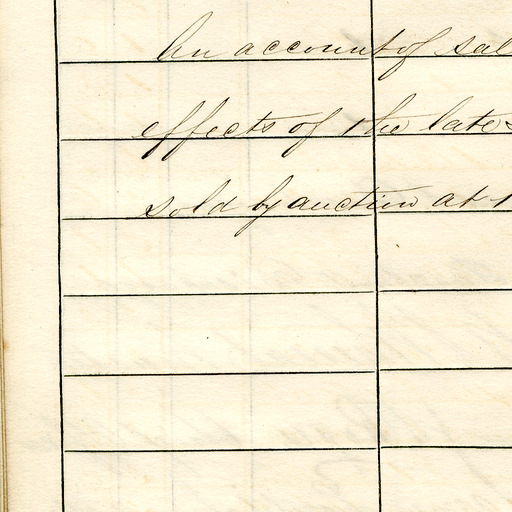 An account of sal
effects of the late
sold by auction at